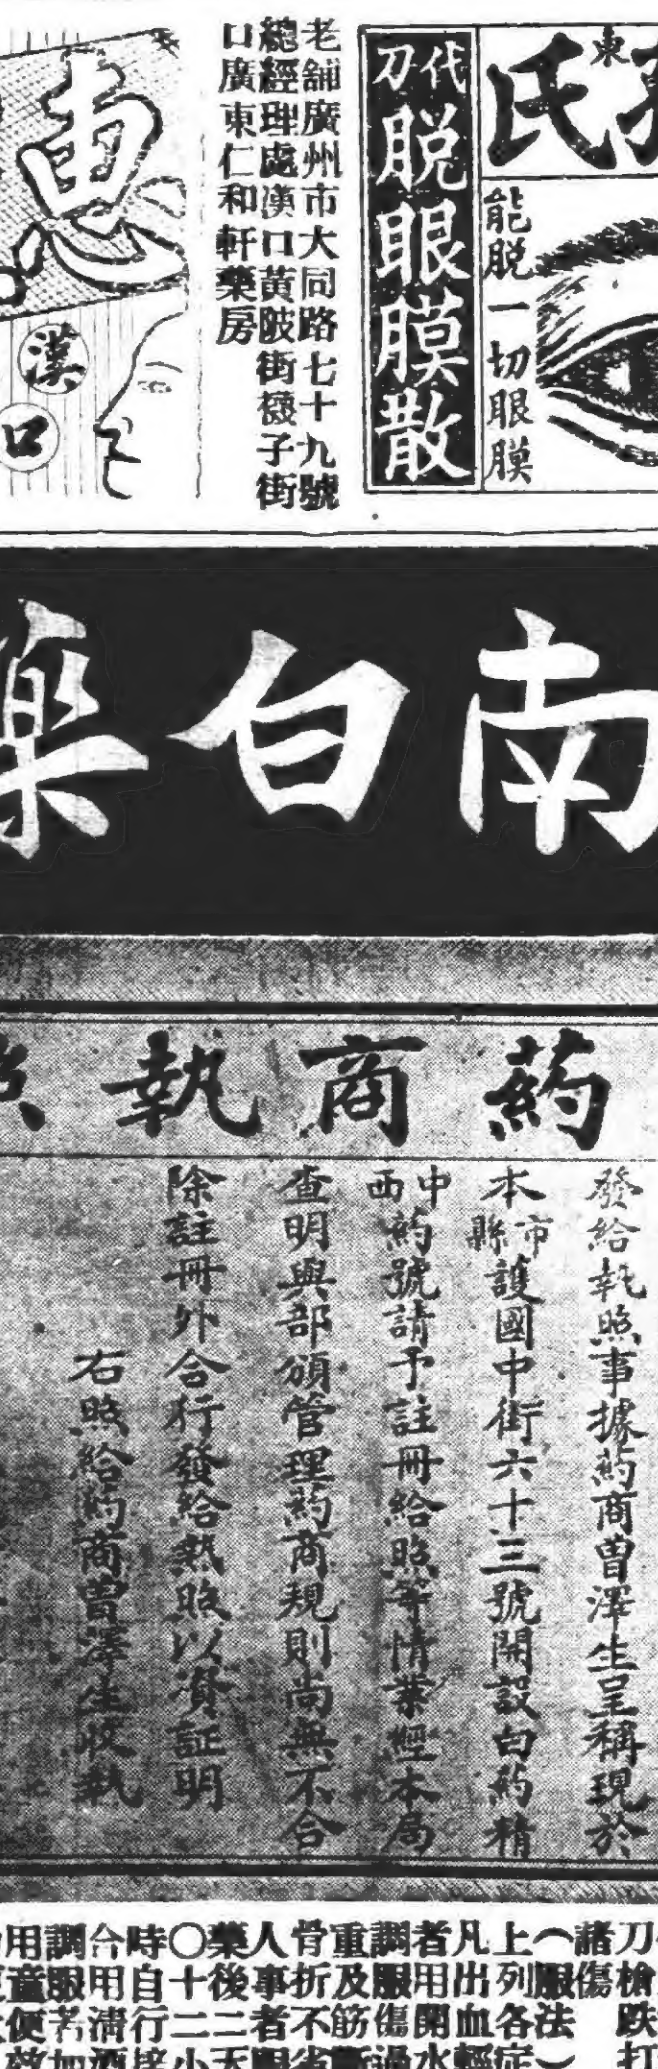 東
氏
能脱一切眼膜
代刀
脱眼膜散
老舖廣州市大同路七十九號
總經理處漢口黃陂街襪子街
口廣東仁和軒藥房
惠
漢
口
南白藥
药商執照
發給執照事據药商曾澤生呈稱現於
本市縣護國中街六十三號開設白药精
中西药號請予註冊給照等情業經本局
查明與部頒管理药商規則尚無不合
除註冊外合行發給執照以資証明
右照給药商曾澤生收執
刀槍跌打
諸傷
（服法）
上列各症
凡出血輕
者用開水
調服傷過
重及筋斷
骨折不省
人事者服
藥後二天
〇十二小
時自行接
合用清酒
調服若加
用童便效